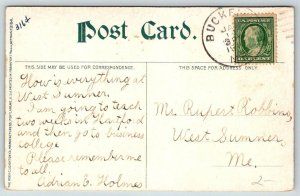 Post Card.
THIS SIDE MAY BE USED FOR CORRESPONDENCE.
THIS SPACE FOR ADDRESS ONLY.
BUCK
How is everything at
West Sumner.
I am going to teach
two weeks in Hartford
and then go to business
college
Please remember me
to all.
Adrian E. Holmes
Mr. Rupert Robbins,
West Sumner,
Me.
2